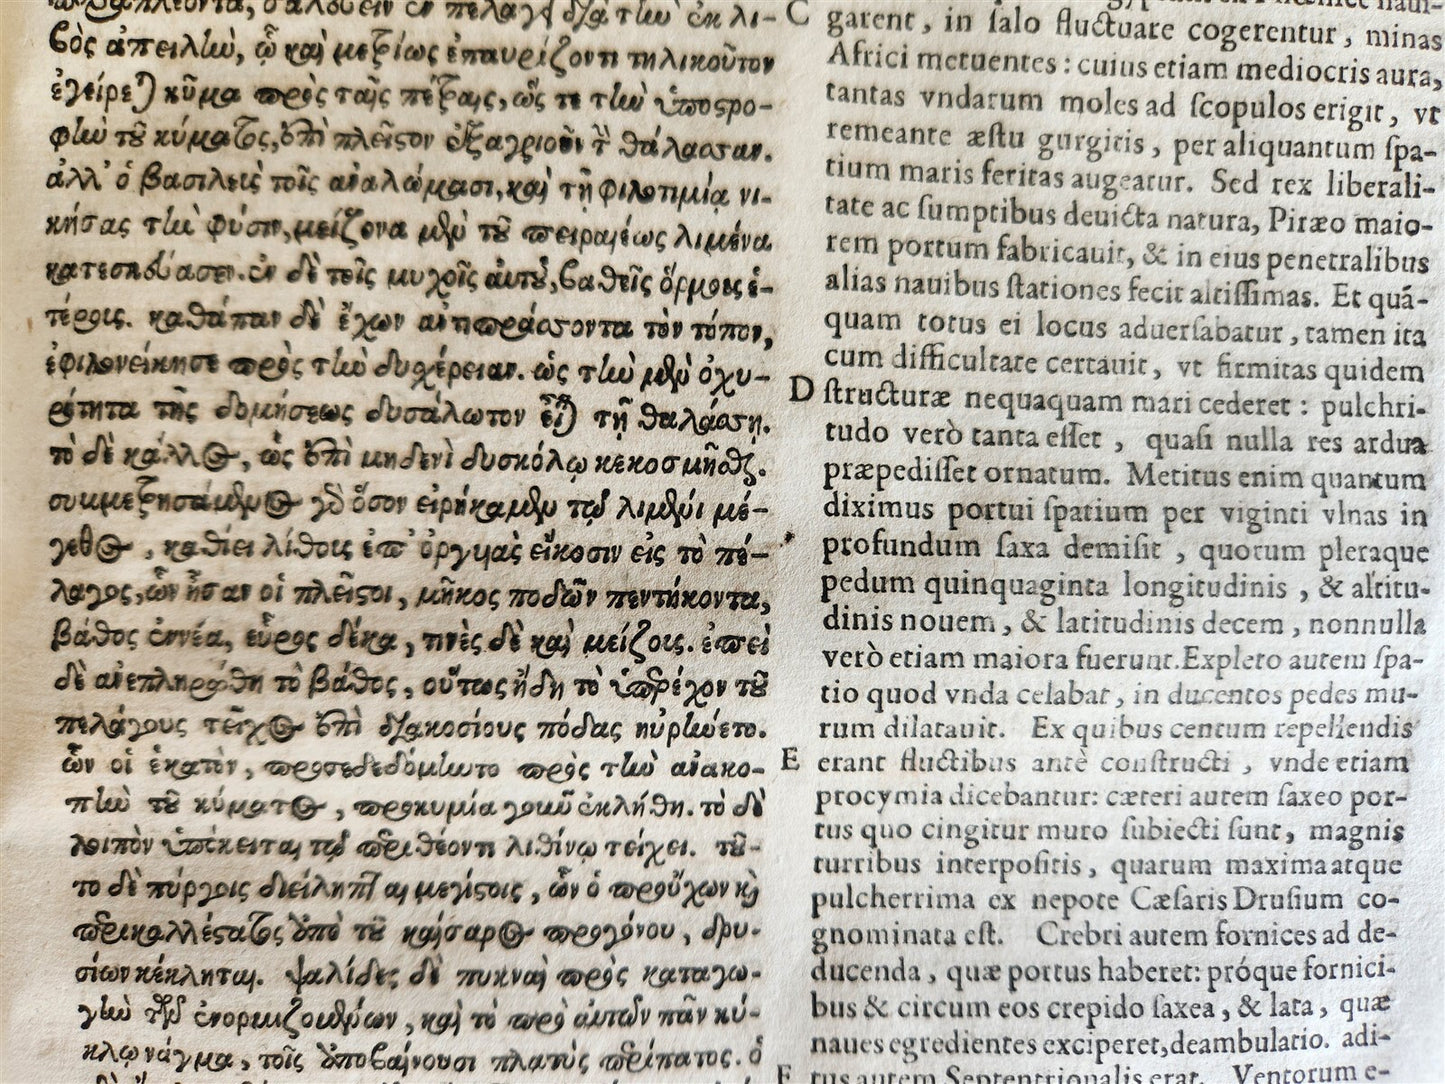 σαλεύειν ἐν πελάγει διὰ τὴν ἐκ λι-
βὸς ἀπειλὴν, ᾧ καὶ μετρίως ἐπαυρίζοντι τηλικοῦτον
ἐγείρεται κῦμα πρὸς ταῖς πέτραις, ὥς τε τὴν ὑποστρο-
φὴν τοῦ κύματος, ἐπὶ πλεῖστον ἐξαγριοῦν τὴν θάλασσαν.
ἀλλ' ὁ βασιλεὺς τοῖς ἀναλώμασι, καὶ τῇ φιλοτιμίᾳ νι-
κήσας τὴν φύσιν, μείζονα μὲν τοῦ πειραιέως λιμένα
κατεσκεύασεν. ἐν δὲ τοῖς μυχοῖς αὐτοῦ, βαθεῖς ὅρμους ἑ-
τέρους. καθάπαν δὲ ἔχων ἀντιπράσσοντα τὸν τόπον,
ἐφιλονείκησε πρὸς τὴν δυσχέρειαν. ὡς τὴν μὲν ὀχυ-
ρότητα τῆς δομήσεως δυσάλωτον εἶναι τῇ θαλάσσῃ.
τὸ δὲ κάλλος, ὡς ἐπὶ μηδενὶ δυσκόλῳ κεκοσμῆσθαι.
συμμετρησάμενος γὰρ ὅσον εἰρήκαμεν τῷ λιμένι μέ-
γεθος, καθίει λίθους ἐπ' ὀργυιὰς εἴκοσιν εἰς τὸ πέ-
λαγος, ὧν ἦσαν οἱ πλεῖστοι, μῆκος ποδῶν πεντήκοντα,
βάθος ἐννέα, εὖρος δέκα, τινὲς δὲ καὶ μείζους. ἐπεὶ
δὲ ἀνεπληρώθη τὸ βάθος, οὕτως ἤδη τὸ ὑπερέχον τοῦ
πελάγους τεῖχος ἐπὶ διακοσίους πόδας ηὐρύνετο.
ὧν οἱ ἑκατὸν, προσεδεδόμηντο πρὸς τὴν ἀνακο-
πὴν τοῦ κύματος, προκυμία γοῦν ἐκλήθη. τὸ δὲ
λοιπὸν ὑπόκειται τῷ περιθέοντι λιθίνῳ τείχει. τοῦ-
το δὲ πύργοις διείληπται μεγίστοις, ὧν ὁ προὔχων καὶ
περικαλλέστατος ἀπὸ τοῦ καίσαρος προγόνου, δρυ-
σίων κέκληται. ψαλίδες δὲ πυκναὶ πρὸς καταγω-
γὴν τῶν ἐνορμιζομένων, καὶ τὸ πρὸ αὐτῶν πᾶν κύ-
κλῳ νάγμα, τοῖς ἀποβαίνουσι πλατὺς περίπατος. ὁ
C garent, in ſalo fluctuare cogerentur, minas
Africi metuentes: cuius etiam mediocris aura,
tantas vndarum moles ad ſcopulos erigit, vt
remeante æſtu gurgitis, per aliquantum ſpa-
tium maris feritas augeatur. Sed rex liberali-
tate ac ſumptibus deuicta natura, Piræo maio-
rem portum fabricauit, & in eius penetralibus
alias nauibus ſtationes fecit altiſſimas. Et quā-
quam totus ei locus aduerſabatur, tamen ita
cum difficultate certauit, vt firmitas quidem
D ſtructuræ nequaquam mari cederet: pulchri-
tudo verò tanta eſſet, quaſi nulla res ardua
præpediſſet ornatum. Metitus enim quantum
diximus portui ſpatium per viginti vlnas in
profundum ſaxa demiſit, quorum pleraque
pedum quinquaginta longitudinis, & altitu-
dinis nouem, & latitudinis decem, nonnulla
verò etiam maiora fuerunt. Expleto autem ſpa-
tio quod vnda celabat, in ducentos pedes mu-
rum dilatauit. Ex quibus centum repellendis
E erant fluctibus antè conſtructi, vnde etiam
procymia dicebantur: cæteri autem ſaxeo por-
tus quo cingitur muro ſubiecti ſunt, magnis
turribus interpoſitis, quarum maxima atque
pulcherrima ex nepote Cæſaris Druſium co-
gnominata eſt. Crebri autem fornices ad de-
ducenda, quæ portus haberet: próque fornici-
bus & circum eos crepido ſaxea, & lata, quæ
naues egredientes exciperet, deambulatio. adi-
F tus autem Septentrionalis erat. Ventorum e-